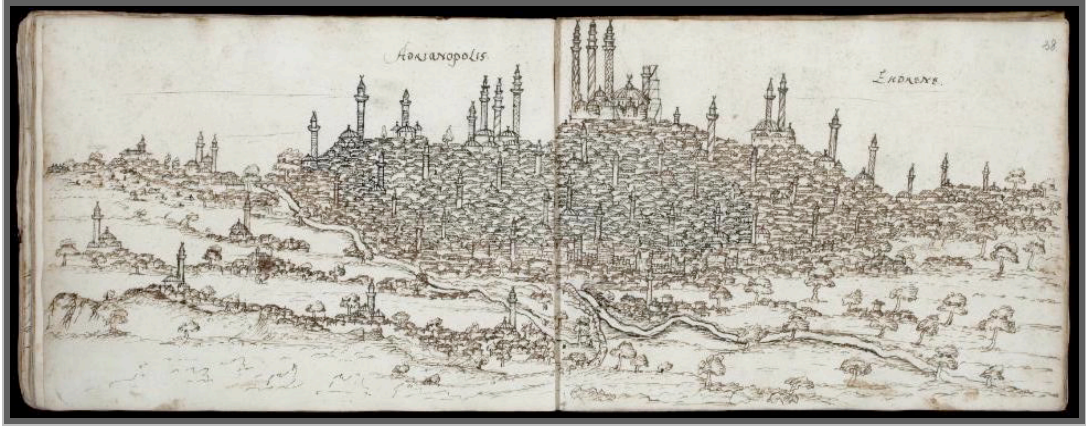 ADRIANOPOLIS
ENDRENE.
38